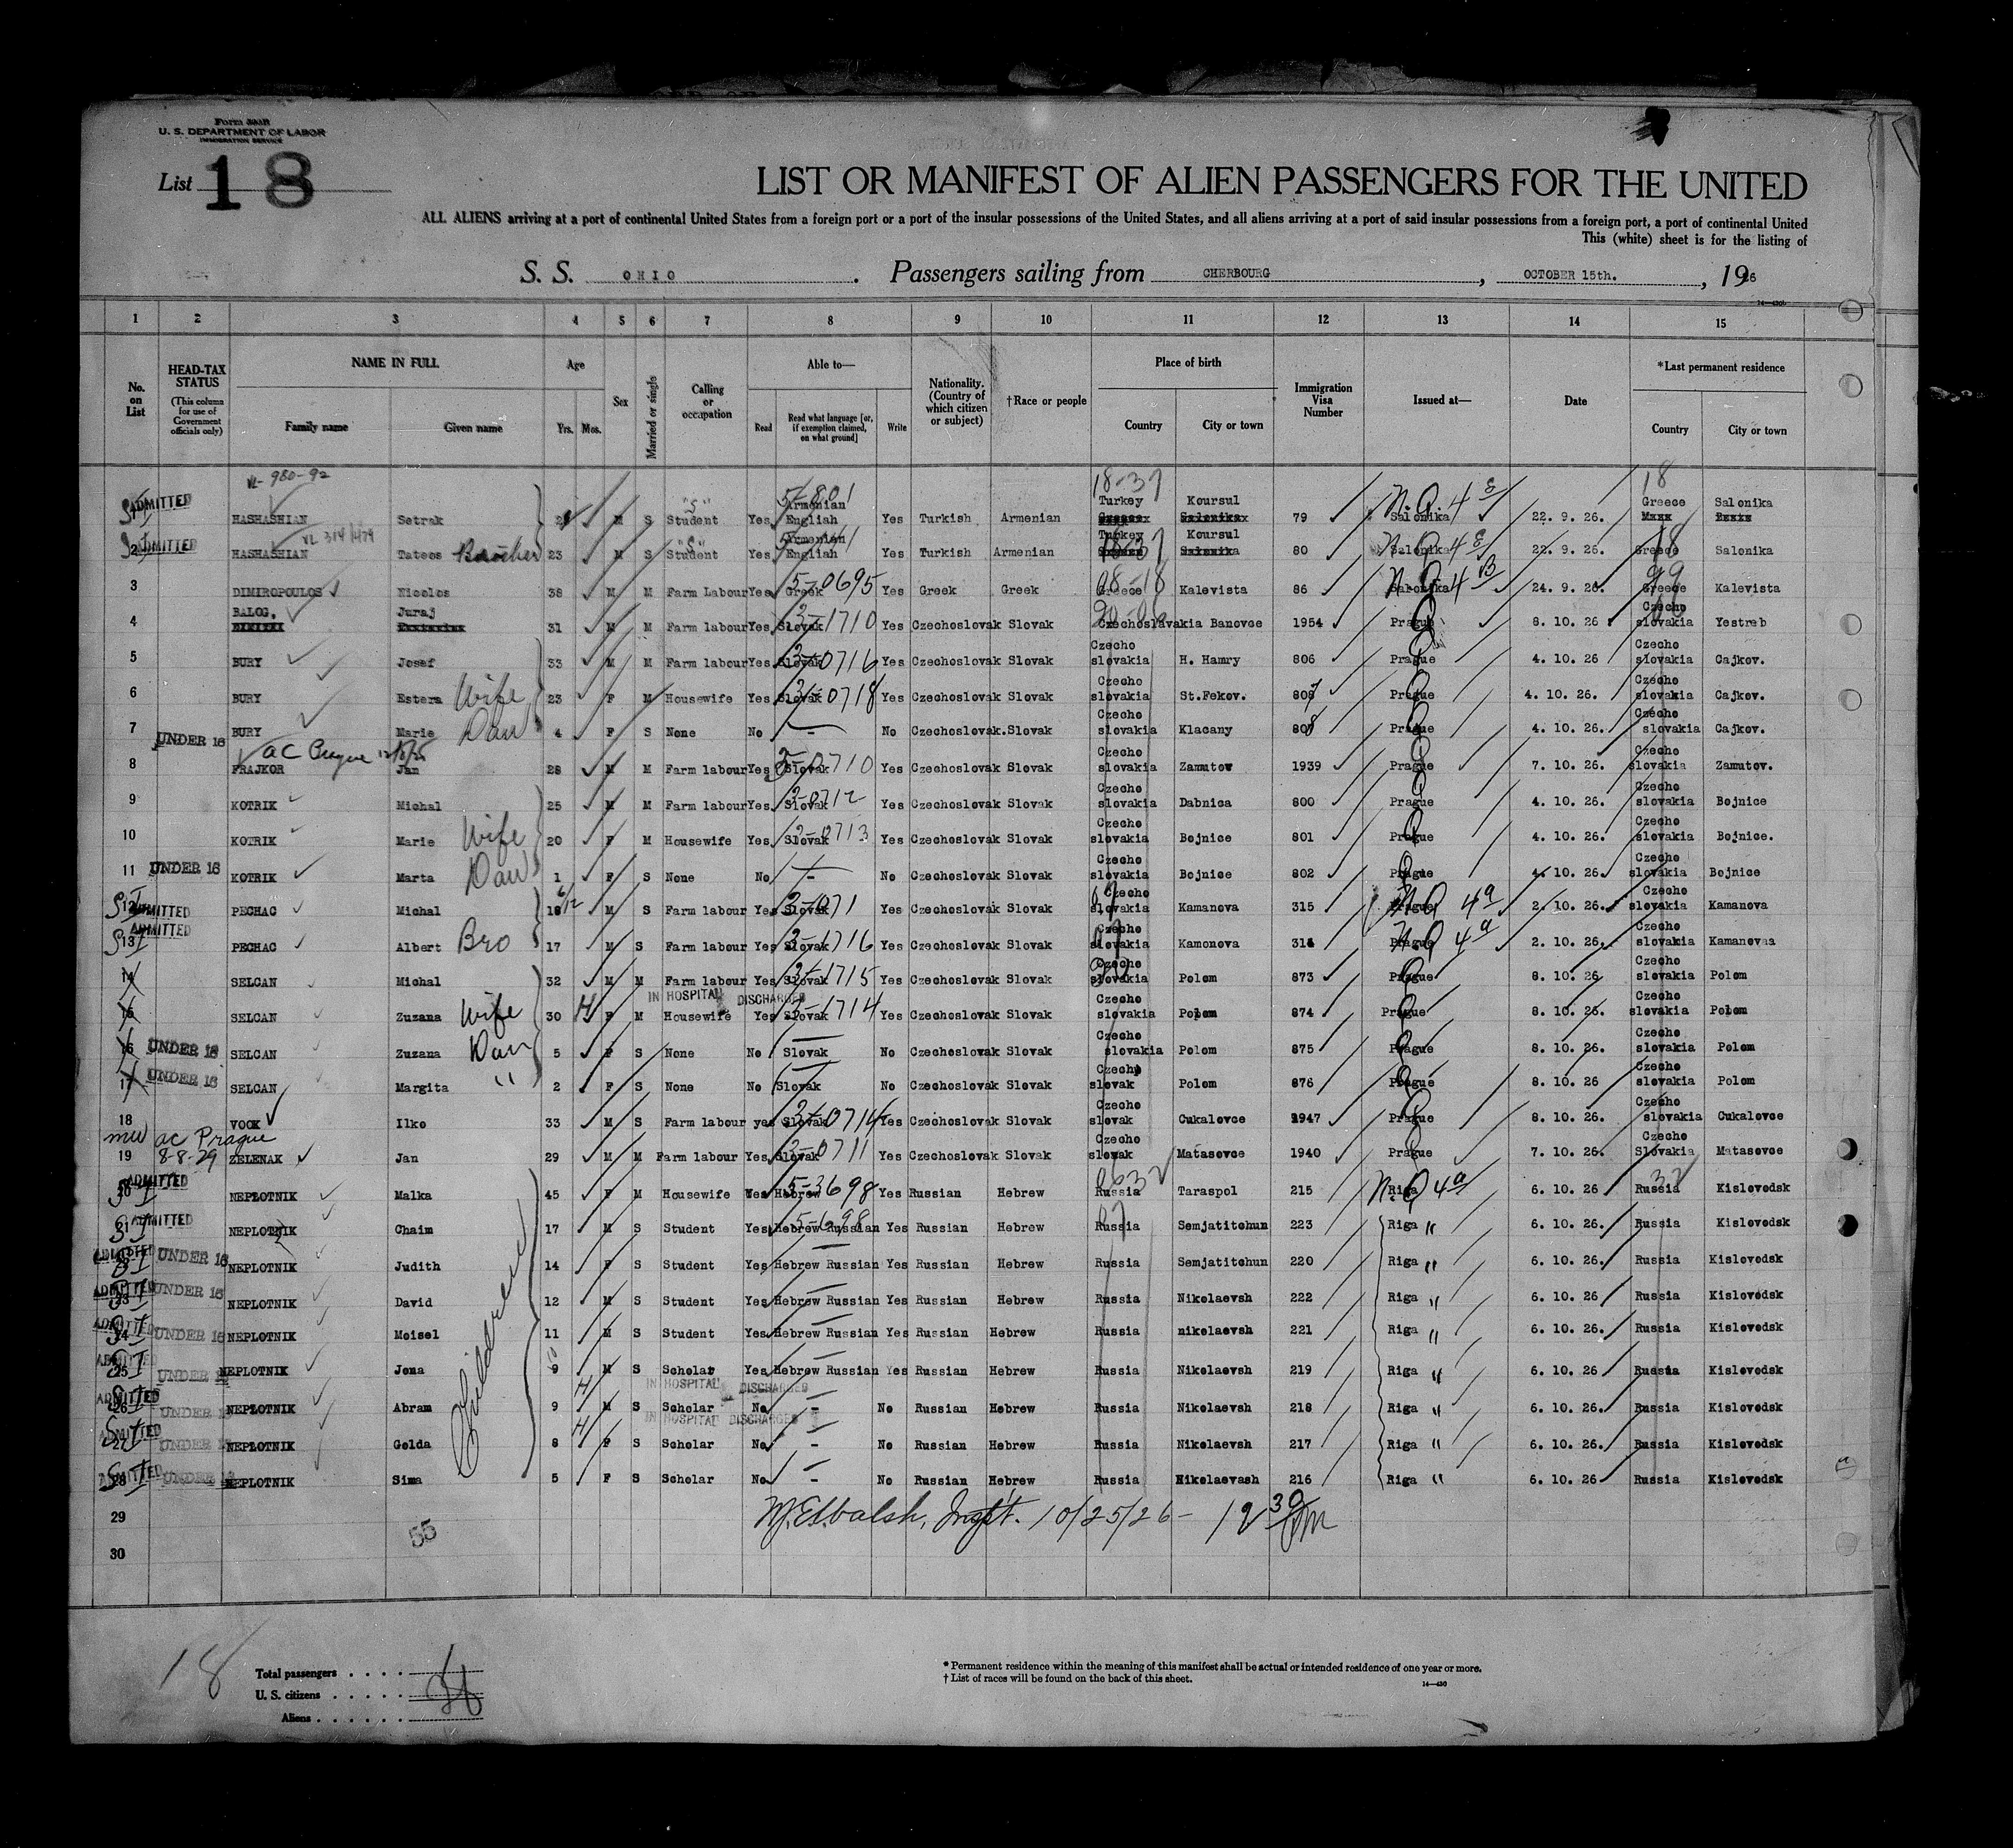 Form 500B
U. S. DEPARTMENT OF LABOR
IMMIGRATION SERVICE
List 18
LIST OR MANIFEST OF ALIEN PASSENGERS FOR THE UNITED
ALL ALIENS arriving at a port of continental United States from a foreign port or a port of the insular possessions of the United States, and all aliens arriving at a port of said insular possessions from a foreign port, a port of continental United
This (white) sheet is for the listing of
S. S. OHIO. Passengers sailing from CHERBOURG, OCTOBER 15th., 1926
14—430
1 2 3 4 5 6 7 8 9 10 11 12 13 14 15
No. on List
HEAD-TAX STATUS (This column for use of Government officials only)
NAME IN FULL
Family name Given name
Age
Yrs. Mos.
Sex
Married or single
Calling or occupation
Able to—
Read Read what language [or, if exemption claimed, on what ground] Write
Nationality. (Country of which citizen or subject)
†Race or people
Place of birth
Country City or town
Immigration Visa Number
Issued at—
Date
*Last permanent residence
Country City or town
VL-980-92 18-37 18
ADMITTED HASHASHIAN Setrak M S "S" Student Yes Armenian English Yes Turkish Armenian Turkey Koursul 79 Salonika N.Q. 4 22. 9. 26. Greece Salonika
2 ADMITTED HASHASHIAN Tateos Brother 23 M S "S" Student Yes Armenian English Yes Turkish Armenian Turkey Koursul 80 Salonika 22. 9. 26. Greece Salonika
3 DIMIROPOULOS Nicolos 38 M M Farm Labour Yes Greek 5-0695 Yes Greek Greek Greece Kalevista 86 Salonika 24. 9. 26. Greece Kalevista
4 BALOG, Juraj 31 M M Farm labour Yes Slovak 3-1710 Yes Czechoslovak Slovak Czechoslavakia Banovce 1954 Prague 8. 10. 26 Czecho slovakia Yestreb
5 BURY Josef 33 M M Farm labour Yes Slovak 0716 Yes Czechoslovak Slovak Czecho slovakia H. Hamry 806 Prague 4. 10. 26 Czecho slovakia Cajkov.
6 BURY Estera Wife 23 F M Housewife Yes Slovak 0718 Yes Czechoslovak Slovak Czecho slovakia St.Fekov. 807 Prague 4. 10. 26. Czecho slovakia Cajkov.
7 UNDER 16 BURY Marie Dau 4 F S None No - No Czechoslovak. Slovak Czecho slovakia Klacany 808 Prague 4. 10. 26. Czecho slovakia Cajkov.
ac Prague
8 FRAJKOR Jan 28 M M Farm labour Yes Slovak 0710 Yes Czechoslovak Slovak Czecho slovakia Zamutow 1939 Prague 7. 10. 26. Czecho slovakia Zamutov.
9 KOTRIK Michal 25 M M Farm labour Yes Slovak 0712 Yes Czechoslovak Slovak Czecho slovakia Dabnica 800 Prague 4. 10. 26. Czecho slovakia Bojnice
10 KOTRIK Marie Wife 20 F M Housewife Yes Slovak 0713 Yes Czechoslovak Slovak Czecho slovakia Bojnice 801 Prague 4. 10. 26. Czecho slovakia Bojnice.
11 UNDER 16 KOTRIK Marta Dau 1 F S None No - No Czechoslovak Slovak Czecho slovakia Bojnice 802 Prague 4. 10. 26. Czecho slovakia Bojnice
12 ADMITTED PECHAC Michal 18 M S Farm labour Yes Slovak Yes Czechoslovak Slovak Czecho slovakia Kamanova 315 N Q 4a 2. 10. 26. Czecho slovakia Kamanova
13 ADMITTED PECHAC Albert Bro 17 M S Farm labour Yes Slovak 1716 Yes Czechoslovak Slovak Czecho slovakia Kamonova 314 N.Q 4a 2. 10. 26. Czecho slovakia Kamanovaa
14 SELCAN Michal 32 M M Farm labour Yes Slovak 1715 Yes Czechoslovak Slovak Czecho slovakia Polom 873 Prague 8. 10. 26 Czecho slovakia Polom
IN HOSPITAL DISCHARGED
15 SELCAN Zuzana Wife 30 H F M Housewife Yes Slovak 1714 Yes Czechoslovak Slovak Czecho slovakia Polom 874 Prague 8. 10. 26. Czecho slovakia Polom
16 UNDER 16 SELCAN Zuzana Dau 5 F S None No Slovak No Czechoslovak Slovak Czecho slovakia Polom 875 Prague 8. 10. 26. Czecho slovakia Polom
17 UNDER 16 SELCAN Margita " 2 F S None No Slovak No Czechoslovak Slovak Czecho slovak Polom 876 Prague 8. 10. 26 Czecho slovakia Polom
18 VOCK Ilko 33 M S Farm labour yes Slovak 0714 Yes Czechoslovak Slovak Czecho slovak Cukalovce 1947 Prague 8. 10. 26. Czecho slovakia Cukalovce
ac Prague
19 8-8-29 ZELENAK Jan 29 M M Farm labour Yes Slovak 0711 Yes Czechoslovak Slovak Czecho slovak Matasovce 1940 Prague 7. 10. 26. Czecho Slovakia Matasovce
20 ADMITTED NEPLOTNIK Malka 45 F M Housewife Yes Hebrew 5-3698 Yes Russian Hebrew Russia Taraspol 215 Riga N.Q 4a 6. 10. 26 Russia Kislovodsk
21 ADMITTED NEPLOTNIK Chaim 17 M S Student Yes Hebrew Russian Yes Russian Hebrew Russia Semjatitchun 223 Riga " 6. 10. 26. Russia Kislovodsk
ADMITTED UNDER 16 NEPLOTNIK Judith 14 F S Student Yes Hebrew Russian Yes Russian Hebrew Russia Semjatitchun 220 Riga " 6. 10. 26. Russia Kislovodsk
23 ADMITTED UNDER 16 NEPLOTNIK David 12 M S Student Yes Hebrew Russian Yes Russian Hebrew Russia Nikolaevsh 222 Riga " 6. 10. 26. Russia Kislovodsk
24 ADMITTED UNDER 16 NEPLOTNIK Moisel 11 M S Student Yes Hebrew Russian Yes Russian Hebrew Russia nikolaevsh 221 Riga " 6. 10. 26. Russia Kislovodsk
25 ADMITTED UNDER 16 NEPLOTNIK Jona 9 M S Scholar Yes Hebrew Russian Yes Russian Hebrew Russia Nikolaevsh 219 Riga " 6. 10. 26 Russia Kislovodsk
H IN HOSPITAL DISCHARGED
26 ADMITTED UNDER NEPLOTNIK Abram 9 M S Scholar No - No Russian Hebrew Russia Nikolaevsh 218 Riga " 6. 10. 26. Russia Kislovodsk
H IN HOSPITAL DISCHARGED
27 ADMITTED UNDER NEPLOTNIK Golda 8 F S Scholar No - No Russian Hebrew Russia Nikolaevsh 217 Riga " 6. 10. 26. Russia Kislovodsk
28 ADMITTED UNDER NEPLOTNIK Sima 5 F S Scholar No - No Russian Hebrew Russia Nikolaevash 216 Riga " 6. 10. 26 Russia Kislovodsk
Children
29 M.E. Walsh, Inspt. 10/25/26 - 12 30 pm
55
30
18
Total passengers . . . .
U. S. citizens . . . . .
Aliens . . . . . .
* Permanent residence within the meaning of this manifest shall be actual or intended residence of one year or more.
† List of races will be found on the back of this sheet.
14—430